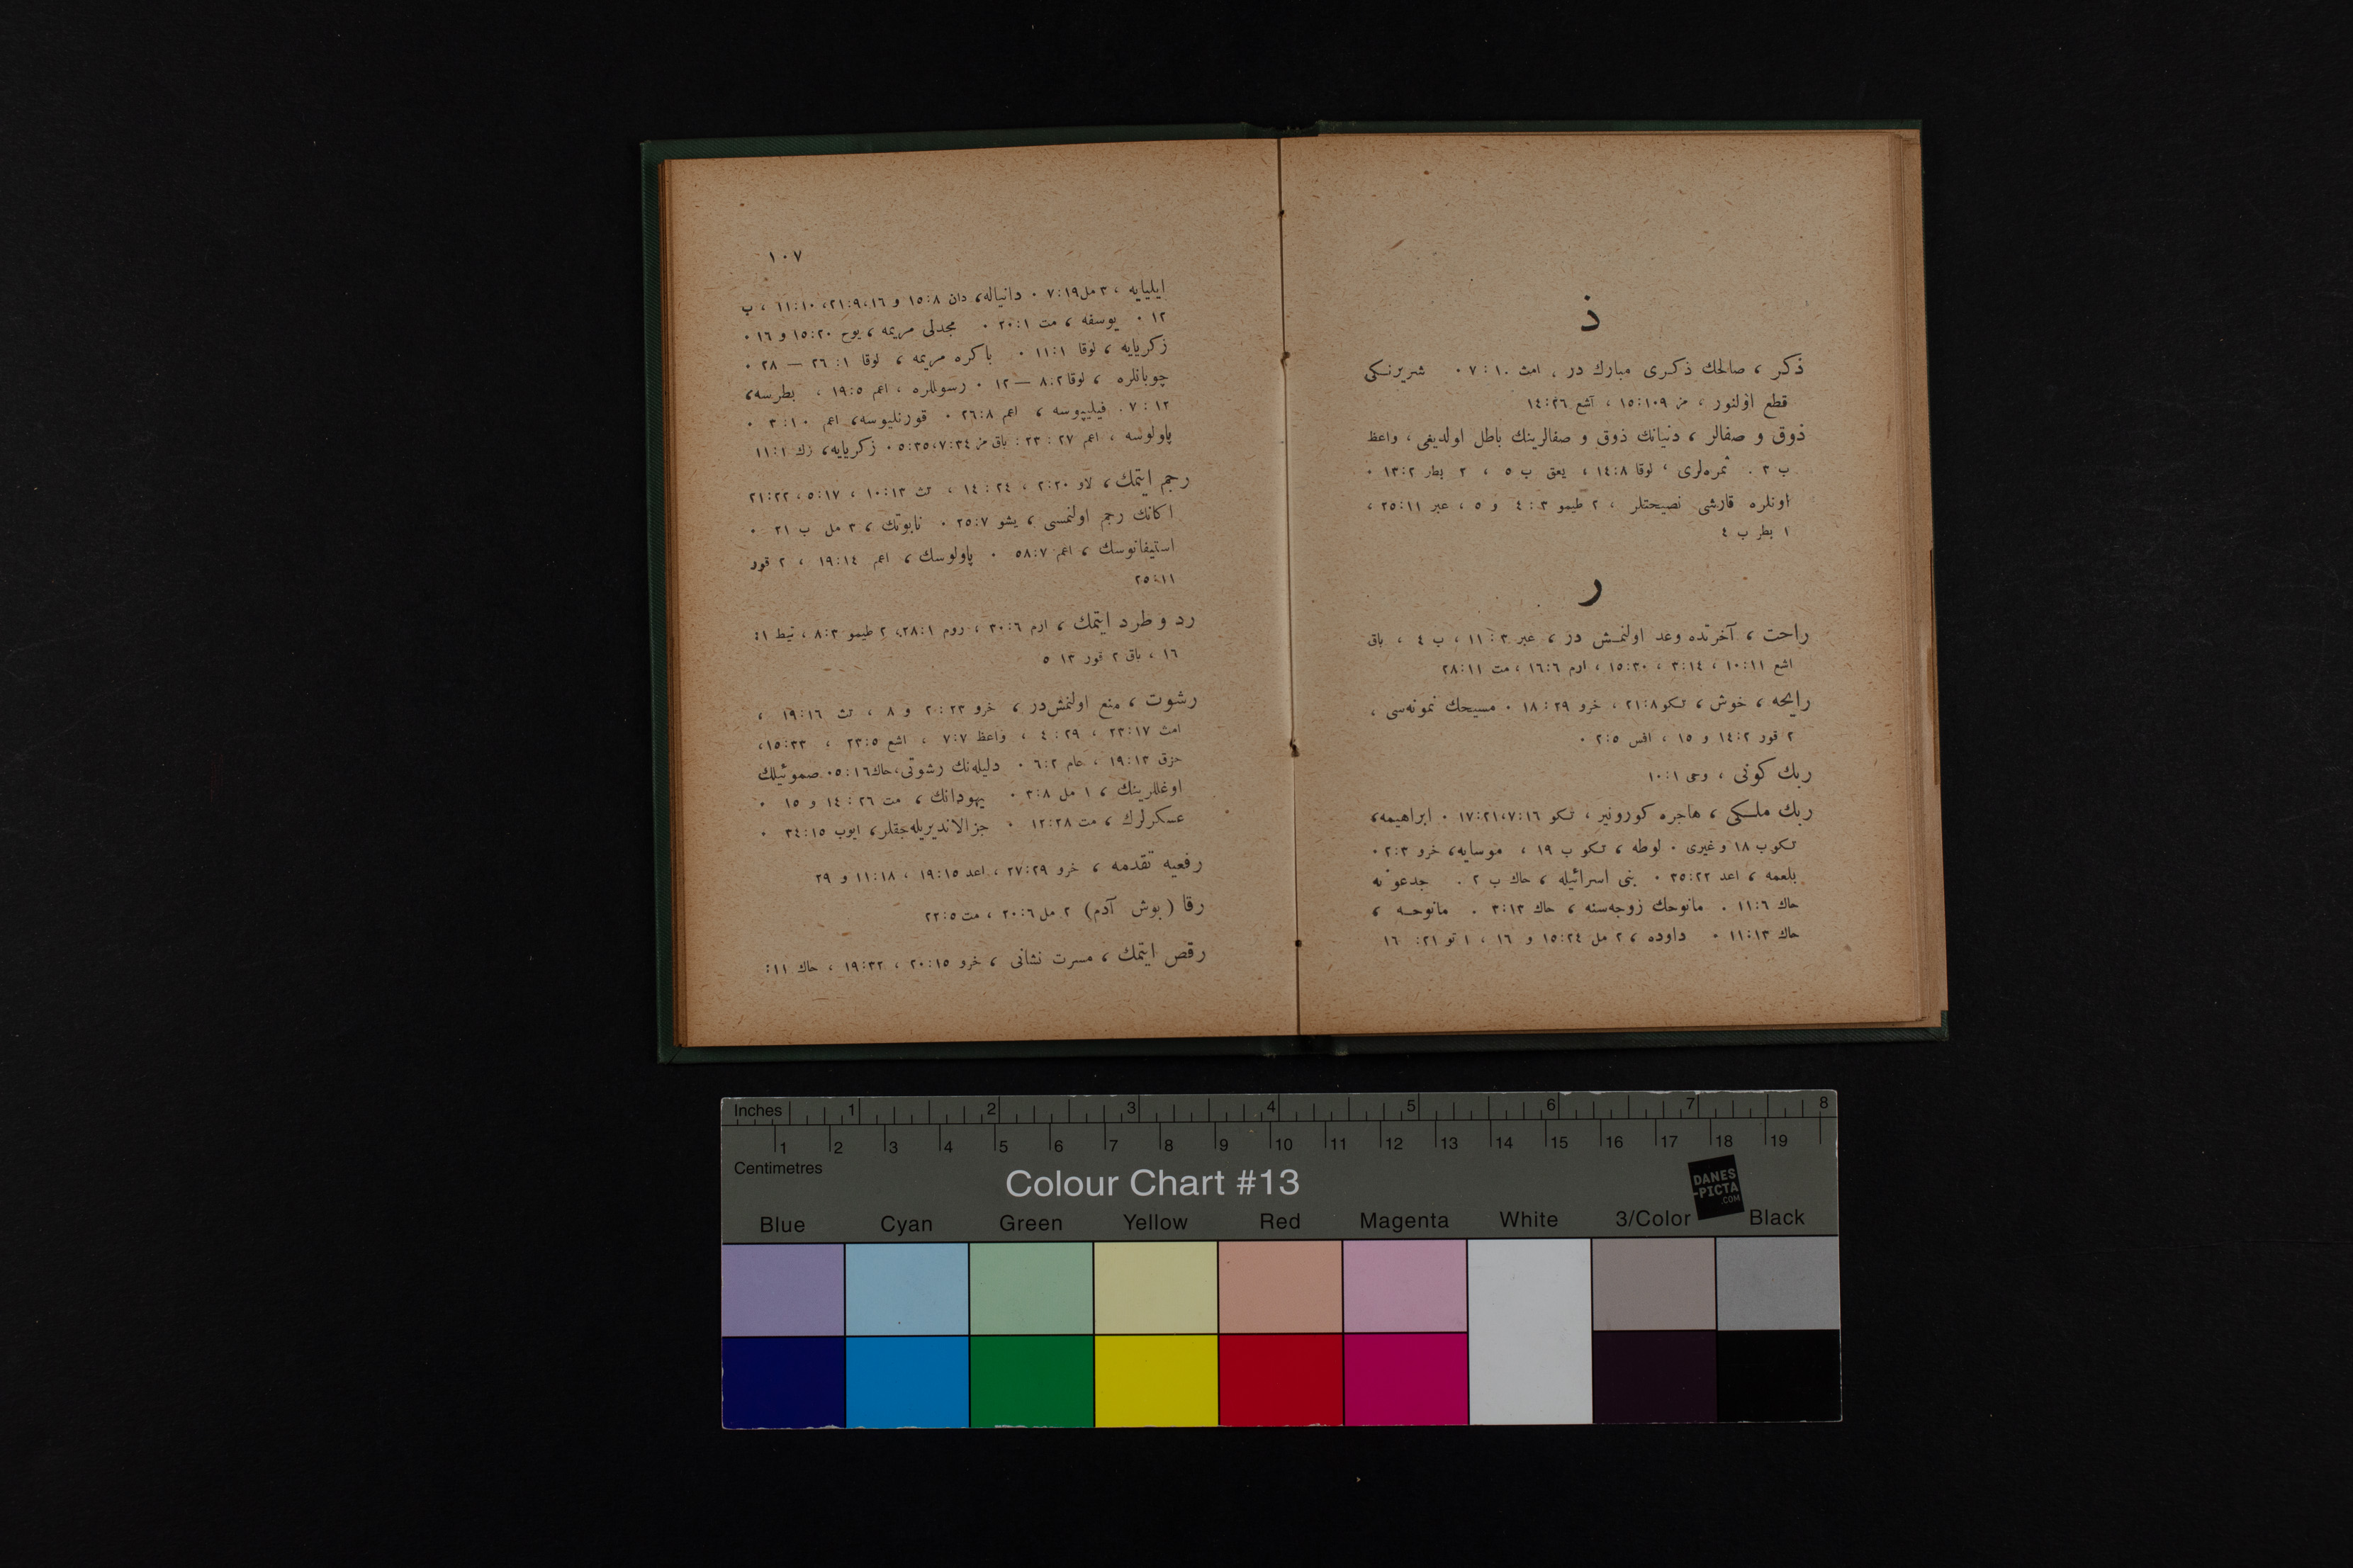 ذ
ذكر ، صالحك ذكرى مبارك در ، امث ١٠ : ٧ ٠ شريرنكى
قطع اولنور ، مز ١٠٩:١٥ ، اشع ٢٦:١٤
ذوق و صفالر ، دنيانك ذوق و صفالرينك باطل اولديغى ، واعظ
ب ٢ ٠ ثمره‌لرى ، لوقا ٨:١٤ ، يعق ب ٥ ، ٢ بطر ٢:١٣ ٠
اونلره قارشى نصيحتلر ، ٢ طيمو ٣ : ٤ و ٥ ، عبر ١١:٢٥ ،
١ بطر ب ٤
ر
راحت ، آخرتده وعد اولنمش در ، عبر ٣ : ١١ ، ب ٤ ، باق
اشع ١١:١٠ ، ١٤:٣ ، ٣٠:١٥ ، ارم ٦:١٦ ، مت ١١:٢٨
رايحه ، خوش ، تكو ٨:٢١ ، خرو ٢٩ : ١٨ ٠ مسيحك نمونه‌سى ،
٢ قور ٢:١٤ و ١٥ ، افس ٥:٢ ٠
ربك كونى ، وحى ١:١٠
ربك ملكى ، هاجره كورونير ، تكو ١٦:٧،٢١:١٧ ٠ ابراهيمه،
تكوب ١٨ و غيرى ٠ لوطه ، تكو ب ١٩ ، موسايه، خرو ٣:٢ ٠
بلعمه ، اعد ٢٢:٣٥ ٠ بنى اسرائيله ، حاك ب ٢ ٠ جدعونه
حاك ٦:١١ ٠ مانوحك زوجه‌سنه ، حاك ١٣:٣ ٠ مانوحه ،
حاك ١٣:١١ ٠ داوده ، ٢ مل ٢٤:١٥ و ١٦ ، ١ تو ٢١: ١٦
١٠٧
ايليايه ، ٣ مل ١٩:٧ ٠ دانياله، دان ٨:١٥ و ١٦،٩:٢١، ١٠:١١ ، ب
١٢ ٠ يوسفه ، مت ١:٢٠ ٠ مجدلى مريمه ، يوح ٢٠:١٥ و ١٦ ٠
زكريايه ، لوقا ١:١١ ٠ باكره مريمه ، لوقا ١ : ٢٦ — ٢٨ ٠
چوبانلره ، لوقا ٢:٨ — ١٢ ٠ رسوللره ، اعم ٥:١٩ ، بطرسه،
١٢ : ٧ ٠ فيليپوسه ، اعم ٨:٢٦ ٠ قورنليوسه، اعم ١٠:٣ ٠
پاولوسه ، اعم ٢٧ : ٢٣ : باق مز ٣٤:٧،٣٥:٥ ٠ زكريايه، زك ١:١١
رجم ايتمك ، لاو ٢٠:٢ ، ٢٤ : ١٤ ، تث ١٣:١٠ ، ١٧:٥ ، ٢٢:٢١
اكانك رجم اولنمسى ، يشو ٧:٢٥ ٠ نابوتك ، ٣ مل ب ٢١ ٠
استيفانوسك ، اعم ٧:٥٨ ٠ پاولوسك ، اعم ١٤:١٩ ، ٢ قور
١١:٢٥
رد و طرد ايتمك ، ارم ٦:٣٠ ، روم ١:٢٨، ٢ طيمو ٣:٨ ، تيط ١:
١٦ ، باق ٢ قور ١٣ ٥
رشوت ، منع اولنمش‌در ، خرو ٢٣ : ٢ و ٨ ، تث ١٦:١٩ ،
امث ١٧:٢٣ ، ٢٩ : ٤ ، واعظ ٧:٧ ، اشع ٥:٢٣ ، ٣٣:١٥،
حزق ١٣:١٩ ، عام ٢:٦ ٠ دليله‌نك رشوتى، حاك ١٦:٥ ٠ صموئيلك
اوغللرينك ، ١ مل ٨:٣ ٠ يهودانك ، مت ٢٦ : ١٤ و ١٥ ٠
عسكرلرك ، مت ٢٨:١٢ ٠ جزالانديريله‌جقلر، ايوب ١٥:٣٤ ٠
رفعيه تقدمه ، خرو ٢٩:٢٧ ، اعد ١٥:١٩ ، ١٨:١١ و ٢٩
رقا (بوش آدم) ٢ مل ٦:٢٠ ، مت ٥:٢٢
رقص ايتمك ، مسرت نشانى ، خرو ١٥:٢٠ ، ٣٢:١٩ ، حاك ١١:
Inches 1 2 3 4 5 6 7 8
1 2 3 4 5 6 7 8 9 10 11 12 13 14 15 16 17 18 19
Centimetres
Colour Chart #13
DANES
-PICTA
.COM
Blue Cyan Green Yellow Red Magenta White 3/Color Black